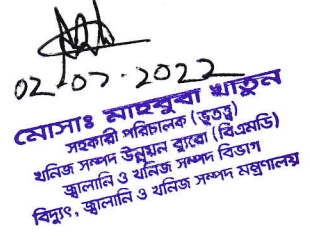 02-07-2022
মোসাঃ মাহবুবা খাতুন
সহকারী পরিচালক (ভূতত্ত্ব)
খনিজ সম্পদ উন্নয়ন ব্যুরো (বিএমডি)
জ্বালানি ও খনিজ সম্পদ বিভাগ
বিদ্যুৎ, জ্বালানি ও খনিজ সম্পদ মন্ত্রণালয়